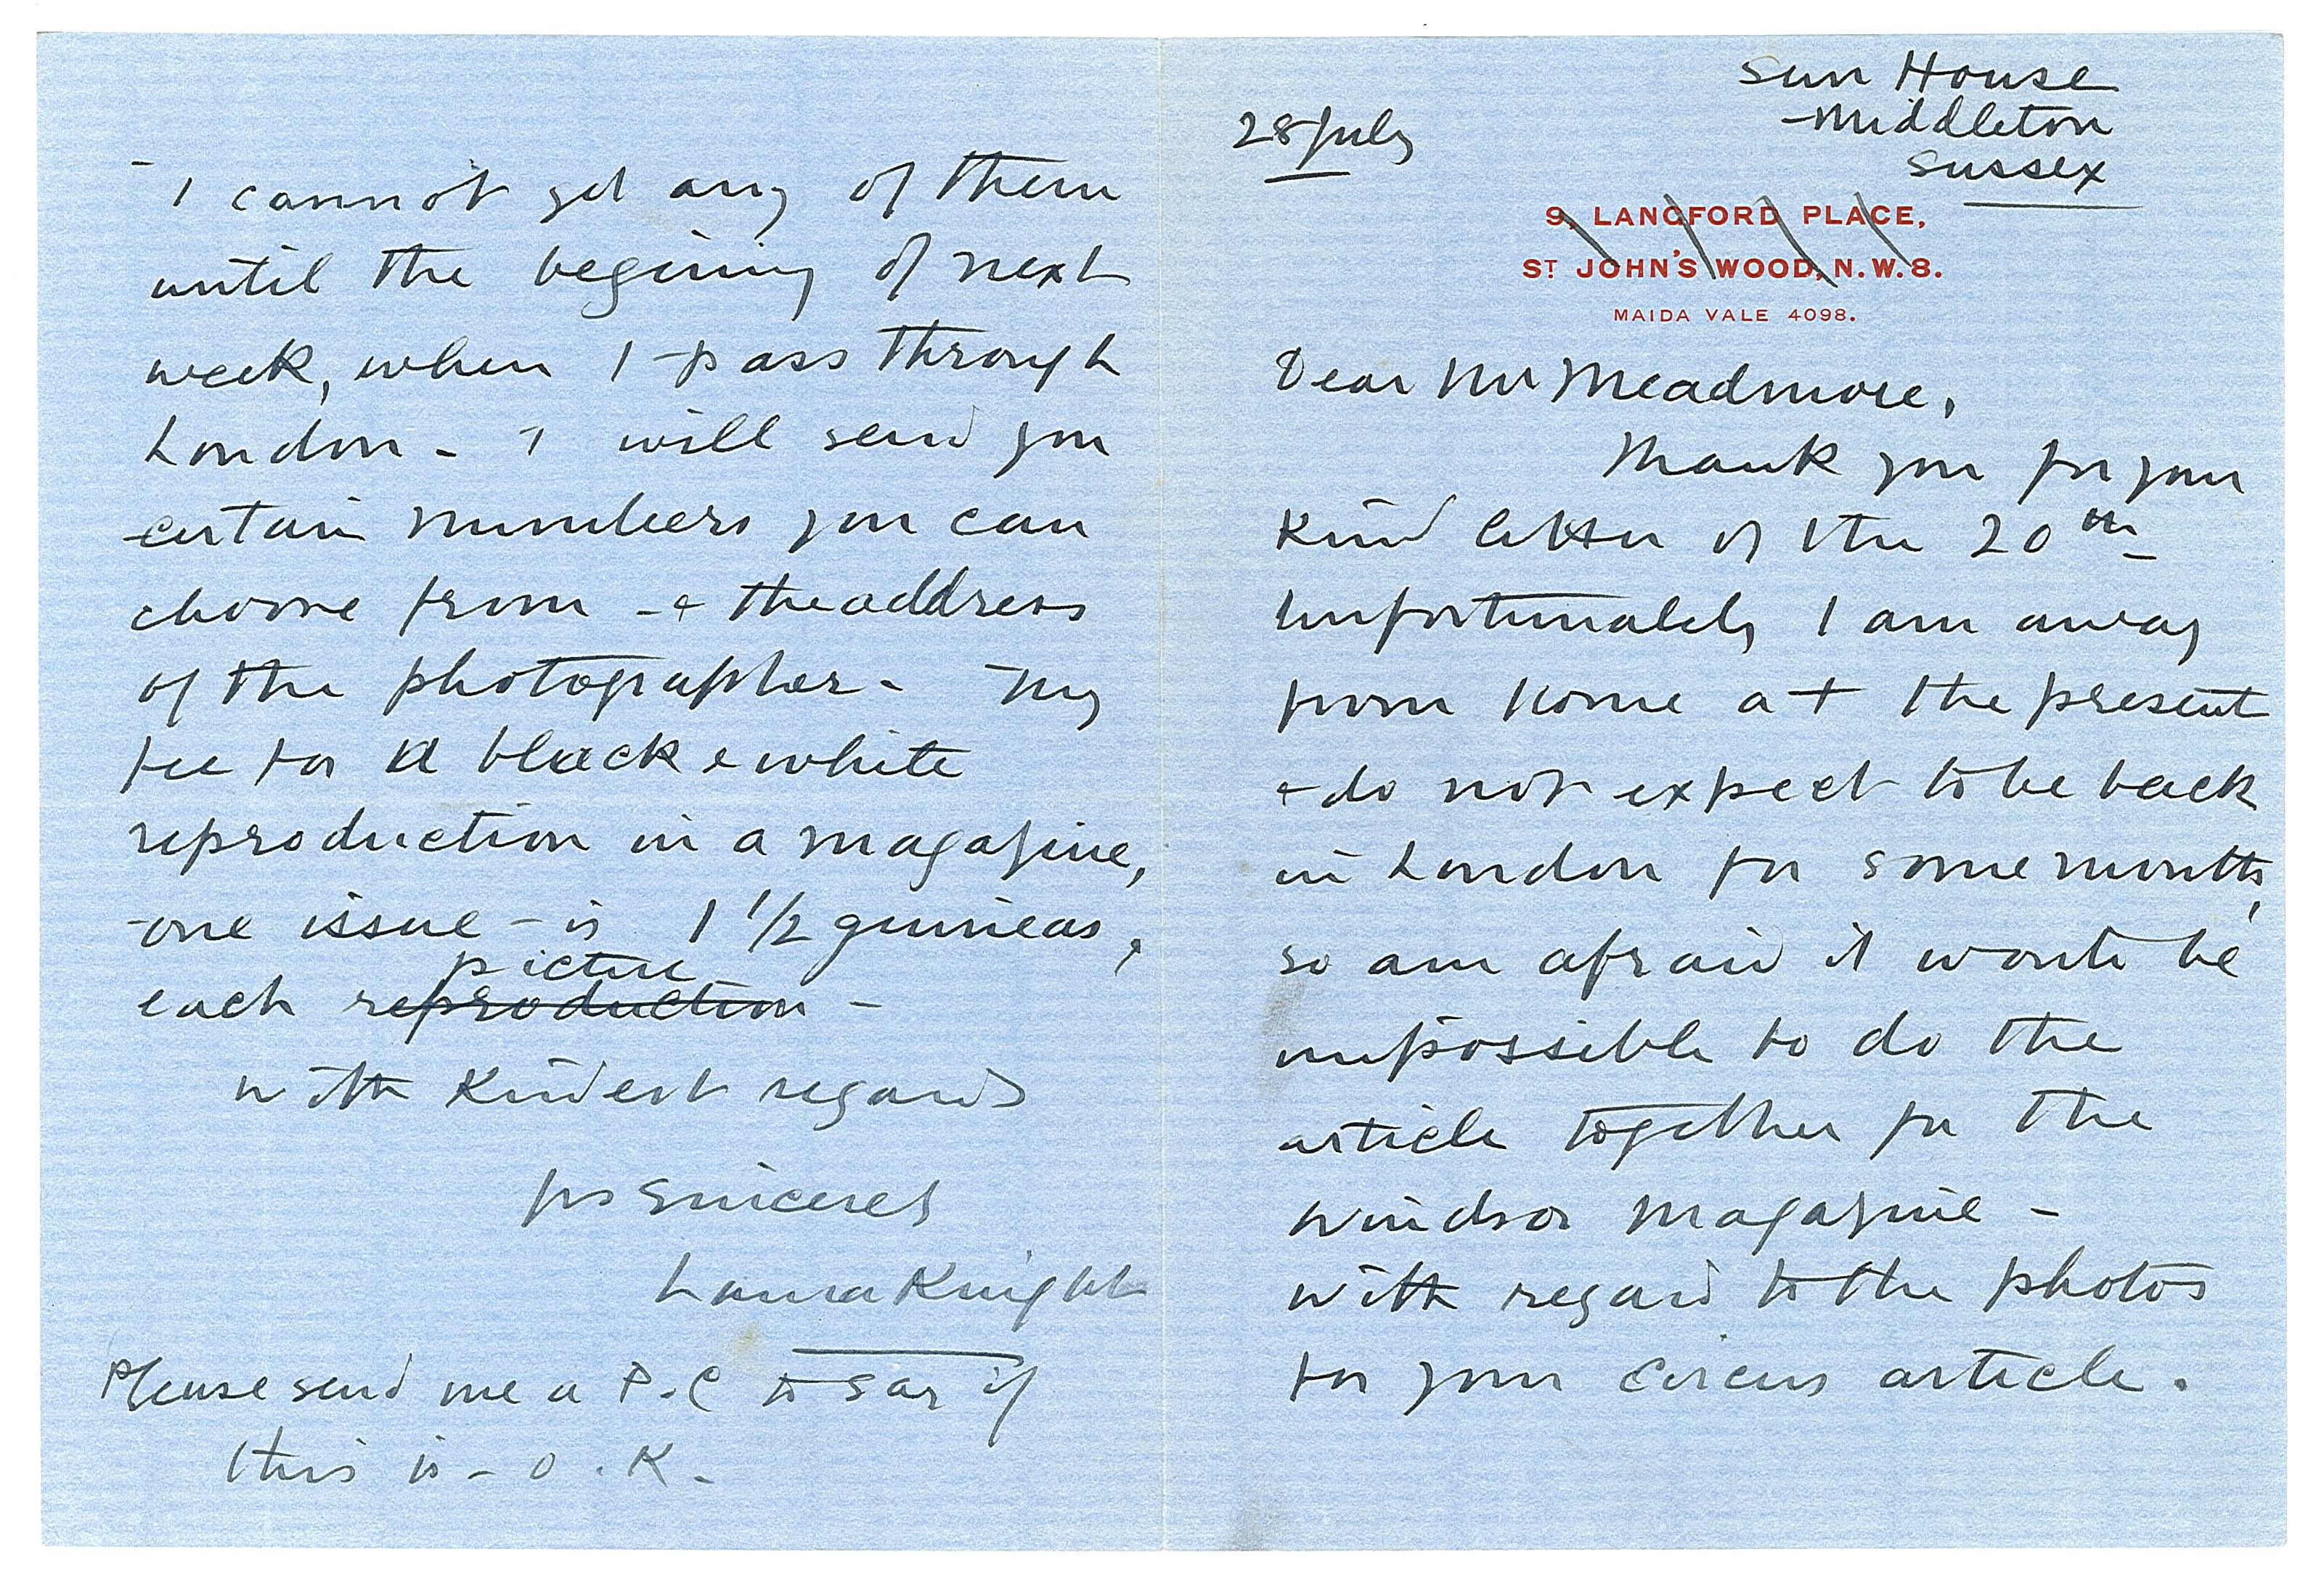 Sun House
Middleton
Sussex
28 July
9, LANGFORD PLACE,
ST JOHN'S WOOD, N.W.8.
MAIDA VALE 4098.
Dear Mr Meadmore,
Thank you for your
kind letter of the 20th
Unfortunately I am away
from home at the present
& do not expect to be back
in London for some months,
so am afraid it wont be
impossible to do the
article together for the
Windsor Magazine -
With regard to the photos
for your circus article.
I cannot get any of them
until the begining of next
week, when I pass through
London - I will send you
certain numbers you can
choose from - & the address
of the photographer - My
fee for a black & white
reproduction in a magazine,
one issue - is 1 1/2 guineas,
picture
each reproduction -
With kindest regards
yrs sincerely
Laura Knight
Please send me a P.C to say if
this is - O.K.